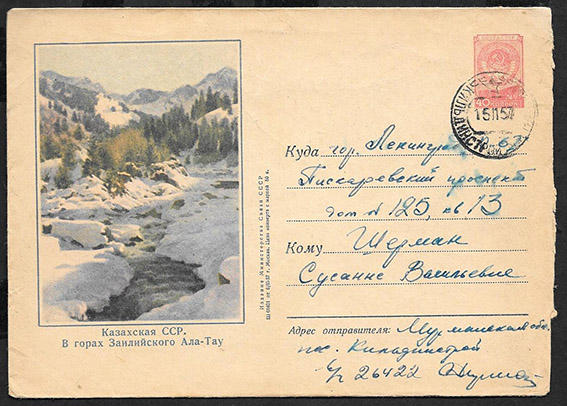 40
15 11 57
Куда гор. Ленинград
Пискаревский проспект
дом № 125, кв 13
Кому Шерман
Сусанне Васильевне
Адрес отправителя: Мурманская обл.
пос. Кильдинстрой
26422
Казахская ССР.
В горах Заилийского Ала-Тау
Издание Министерства Связи СССР